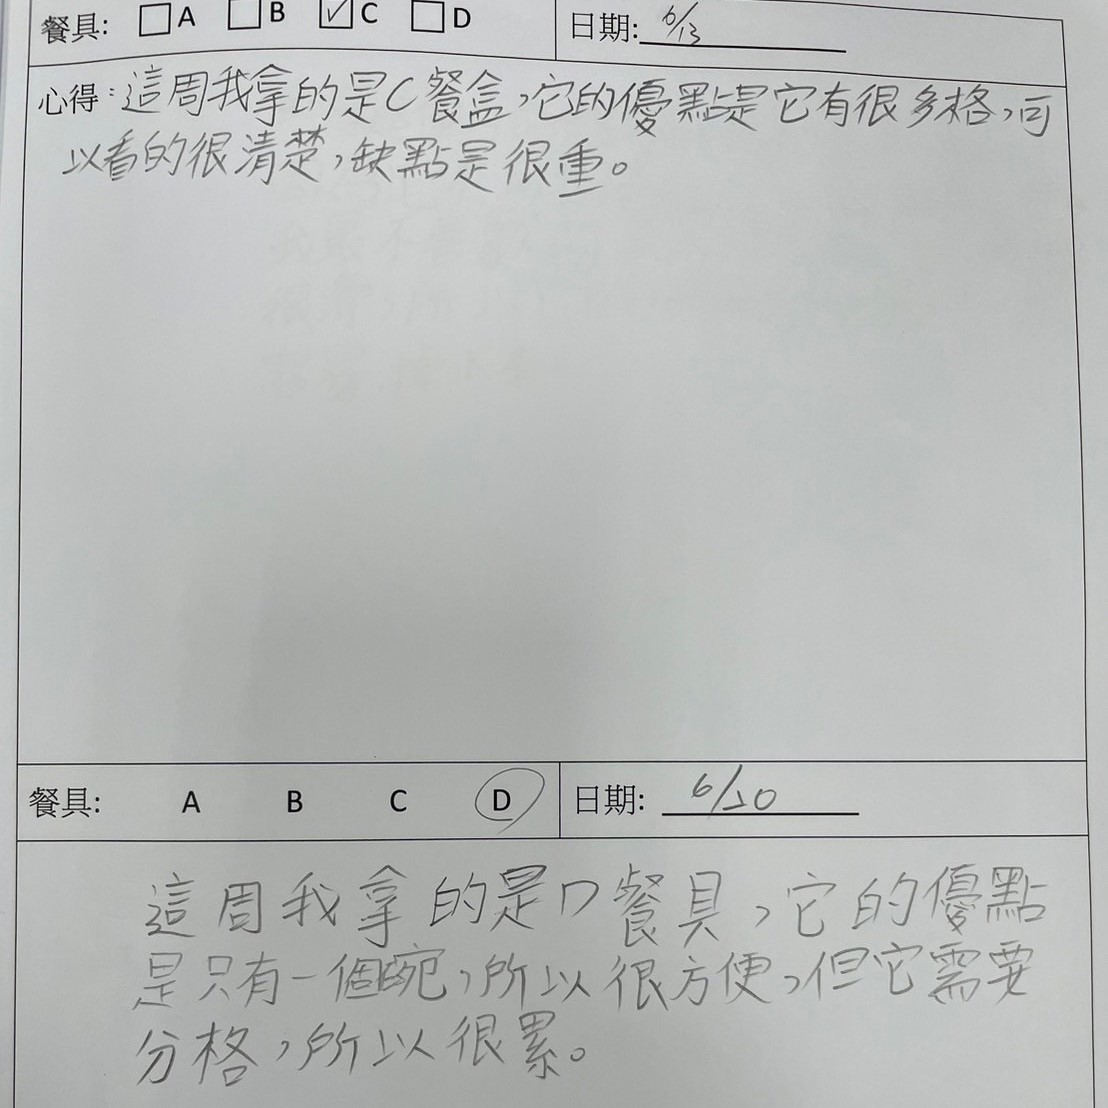 餐具: □A □B ☑C □D 日期: 6/13
心得:這周我拿的是C餐盒,它的優點是它有很多格,可
以看的很清楚,缺點是很重。
餐具: A B C D 日期: 6/20
這周我拿的是D餐具,它的優點
是只有一個碗,所以很方便,但它需要
分格,所以很累。